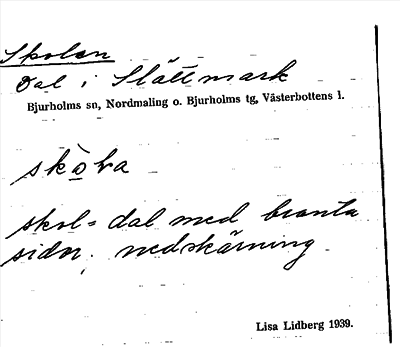 Skolen
Dal i Slättmark
Bjurholms sn, Nordmaling o. Bjurholms tg, Västerbottens l.
skol = dal med branta
sidor, nedskärning
Lisa Lidberg 1939.